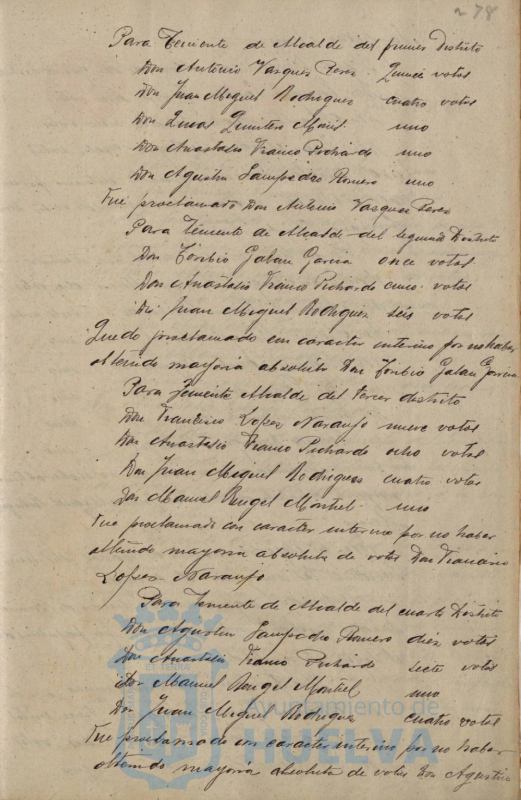 278
Para Teniente de Alcalde del primer distrito
Don Antonio Vasquez Perez Quince votos
Don Juan Miguel Rodriguez cuatro votos
Don Lucas Quintero uno
Don Anastasio Franco Pichardo uno
Don Agustin Sampedro Romero uno
Fue proclamado Don Antonio Vasquez Perez
Para Teniente de Alcalde del segundo Distrito
Don Toribio Galan Garcia once votos
Don Anastasio Franco Pichardo cinco votos
Don Juan Miguel Rodriguez seis votos
Quedo proclamado con caracter interino por no haber
obtenido mayoria absoluta Don Toribio Galan Garcia
Para Teniente Alcalde del tercer distrito
Don Francisco Lopez Naranjo nueve votos
Don Anastasio Franco Pichardo ocho votos
Don Juan Miguel Rodriguez cuatro votos
Don Manuel Rengel Montiel uno
Fue proclamado con caracter interino por no haber
obtenido mayoria absoluta de votos Don Francisco
Lopez Naranjo
Para Teniente de Alcalde del cuarto Distrito
Don Agustin Sampedro Romero diez votos
Don Anastasio Franco Pichardo siete votos
Don Manuel Rengel Montiel uno
Don Juan Miguel Rodriguez cuatro votos
Fue proclamado con caracter interino por no haber
obtenido mayoria absoluta de votos Don Agustin
Ayuntamiento de
HUELVA